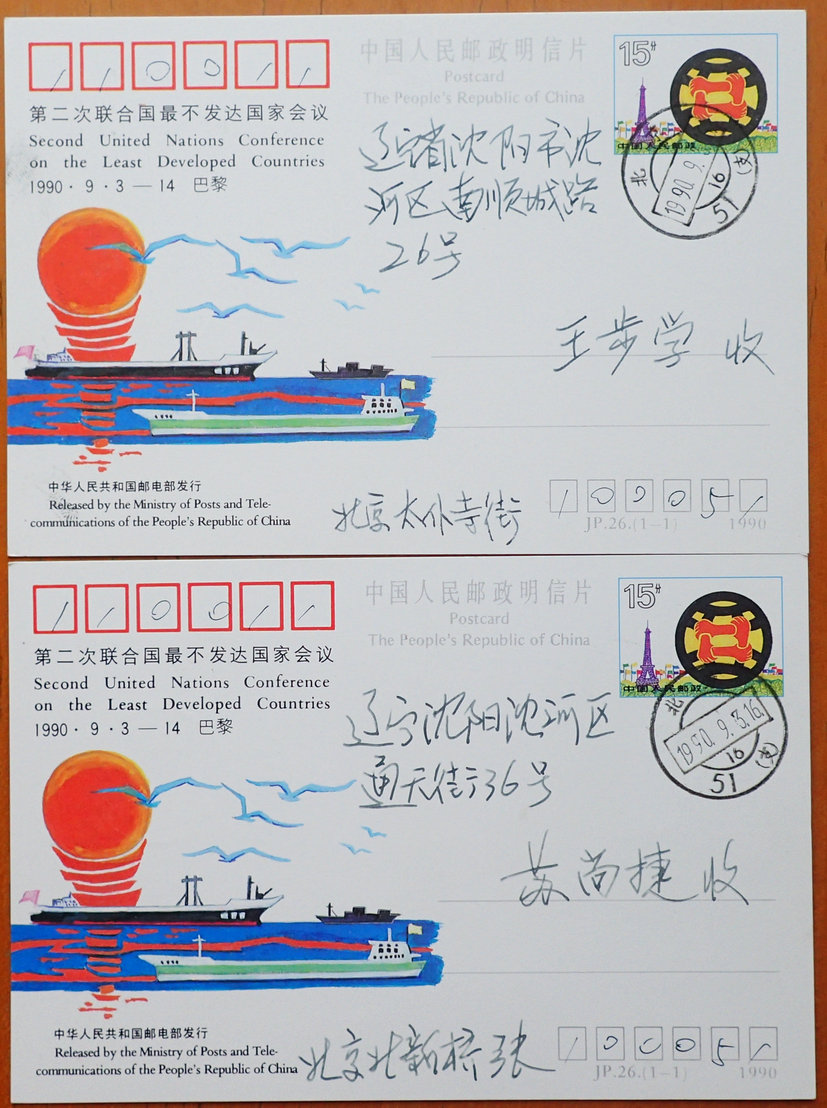 110011
中国人民邮政明信片
Postcard
The People's Republic of China
15分
中国人民邮政
第二次联合国最不发达国家会议
Second United Nations Conference
on the Least Developed Countries
1990·9·3—14 巴黎
北
1990.9.
16
51
(支)
辽宁省沈阳市沈
河区南顺城路
26号
王步学 收
中华人民共和国邮电部发行
Released by the Ministry of Posts and Tele-
communications of the People's Republic of China
北京太仆寺街
100051
JP.26.(1-1) 1990
110011
中国人民邮政明信片
Postcard
The People's Republic of China
15分
中国人民邮政
第二次联合国最不发达国家会议
Second United Nations Conference
on the Least Developed Countries
1990·9·3—14 巴黎
北
1990.9.3.16
16
51
(支)
辽宁沈阳沈河区
通天街36号
苏尚捷 收
中华人民共和国邮电部发行
Released by the Ministry of Posts and Tele-
communications of the People's Republic of China
北京北新桥张
100051
JP.26.(1-1) 1990